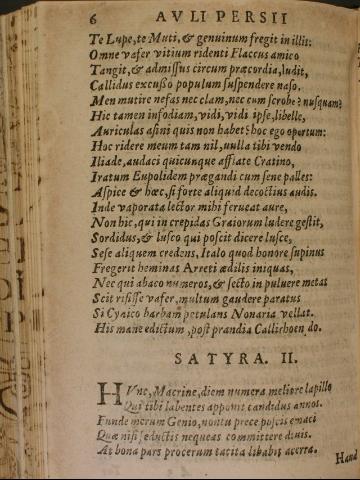 6 AVLI PERSII
Te Lupe, te Muti, & genuinum fregit in illis:
Omne vafer vitium ridenti Flaccus amico
Tangit, & admissus circum præcordia, ludit,
Callidus excusso populum suspendere naso.
Men mutire nefas nec clam, nec cum scrobe? nusquam?
Hic tamen infodiam, vidi, vidi ipse, libelle,
Auriculas asini quis non habet? hoc ego opertum:
Hoc ridere meum tam nil, nulla tibi vendo
Iliade, audaci quicunque afflate Cratino,
Iratum Eupolidem prægandi cum sene palles:
Aspice & hæc, si forte aliquid decoctius audis.
Inde vaporata lector mihi ferueat aure,
Non hic, qui in crepidas Graiorum ludere gestit,
Sordidus, & lusco qui poscit dicere lusce,
Sese aliquem credens, Italo quod honore supinus
Fregerit heminas Arreti ædilis iniquas,
Nec qui abaco numeros, & secto in puluere metas
Scit risisse vafer, multum gaudere paratus
Si Cynico barbam petulans Nonaria vellat.
His mane edictum, post prandia Callirhoen do.
SATYRA. II.
HVnc, Macrine, diem numera meliore lapillo
Qui tibi labentes apponit candidus annos.
Funde merum Genio, non tu prece poscis emaci
Quæ nisi seductis nequeas committere diuis.
At bona pars procerum tacita libabit acerra.
Haud